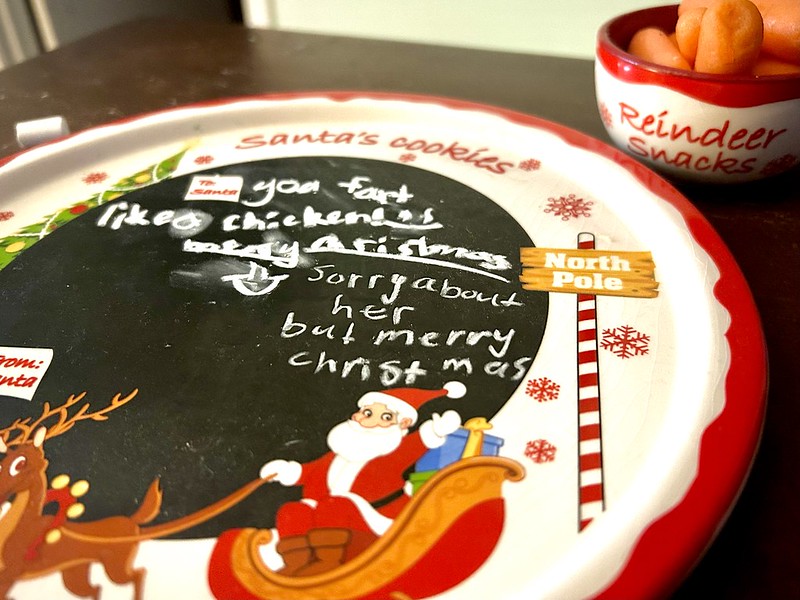 Santa's cookies
Reindeer
Snacks
To
Santa
you fart
like a chicken!
merry christmas
North
Pole
Sorry about
her
but merry
christmas
From:
Santa